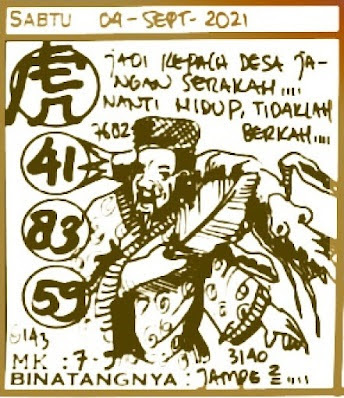 SABTU 04-SEPT-2021
虎
JADI KEPALA DESA JA-
NGAN SERAKAH....
NANTI HIDUP, TIDAKLAH
BERKAH....
7682
41
83
59
3140
MK : 7-
BINATANGNYA :